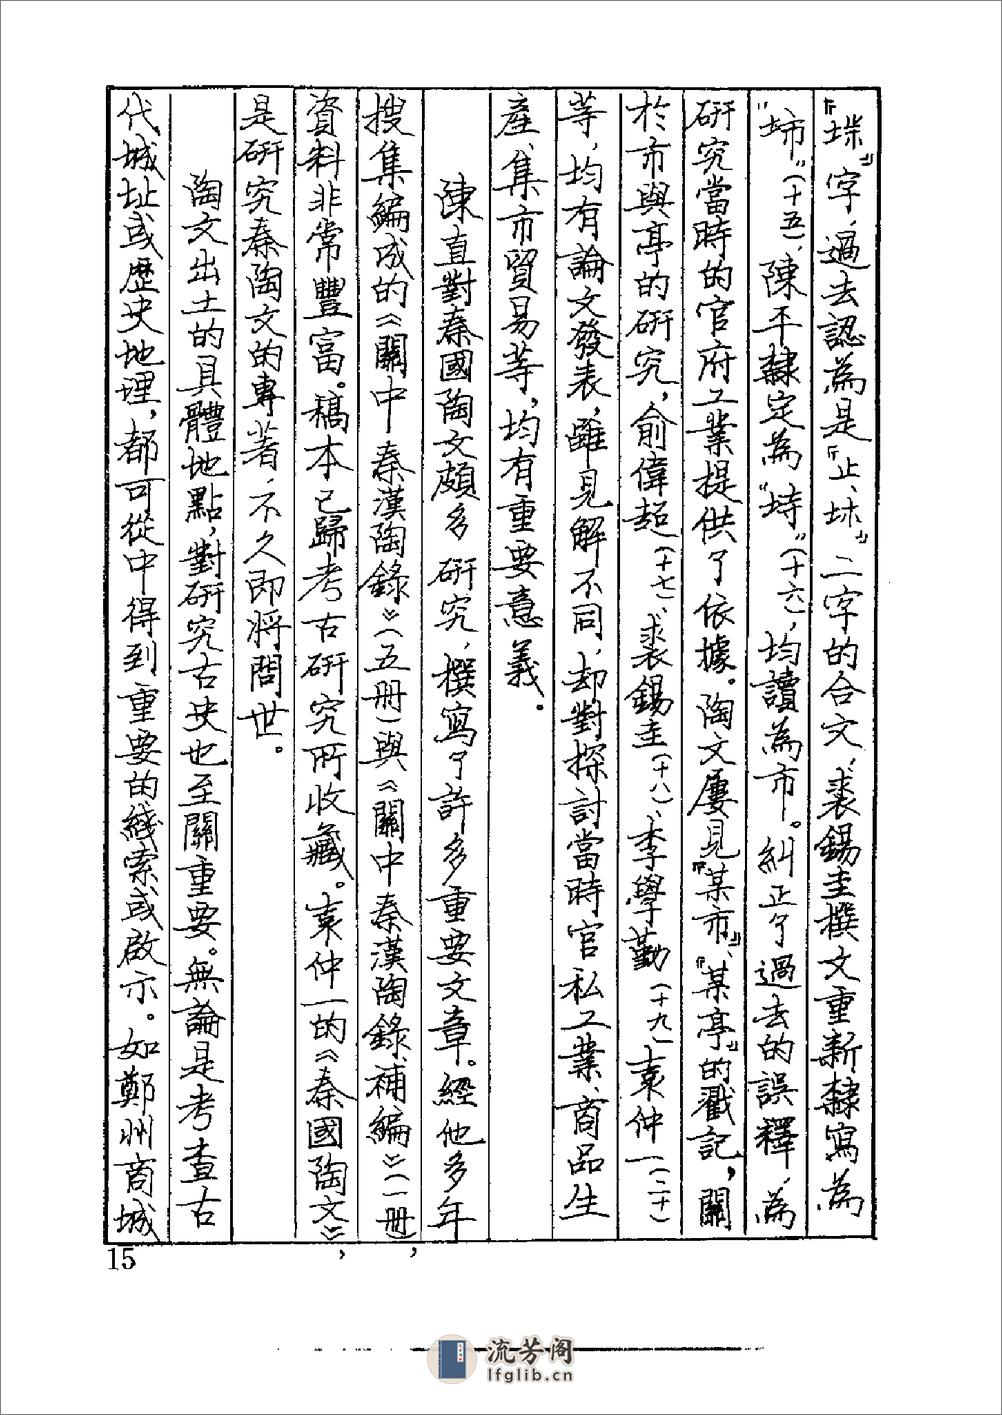 『垛』字，過去認為是『止、坏』二字的合文，裘錫圭撰文重新隸寫為
"坊"（十五），陳平隸定為"塒"（十六），均讀為市。糾正了過去的誤釋，為
研究當時的官府工業提供了依據。陶文屢見『某市』、『某亭』的戳記，關
於市與亭的研究，俞偉超（十七）、裘錫圭（十八）、李學勤（十九）袁仲一（二十）
等，均有論文發表，雖見解不同，却對探討當時官私工業、商品生
產、集市貿易等，均有重要意義。
陳直對秦國陶文頗多研究，撰寫了許多重要文章。經他多年
搜集編成的《關中秦漢陶錄》（五冊）與《關中秦漢陶錄、補編》（一冊），
資料非常豐富。稿本已歸考古研究所收藏。袁仲一的《秦國陶文》，
是研究秦陶文的專著，不久即將問世。
陶文出土的具體地點，對研究古史也至關重要。無論是考查古
代城址或歷史地理，都可從中得到重要的綫索或啟示。如鄭州商城
15
流芳阁
lfglib.cn